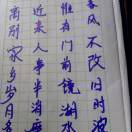 春风不改旧时波
惟有门前镜湖水
近来人事半消磨
离别家乡岁月多